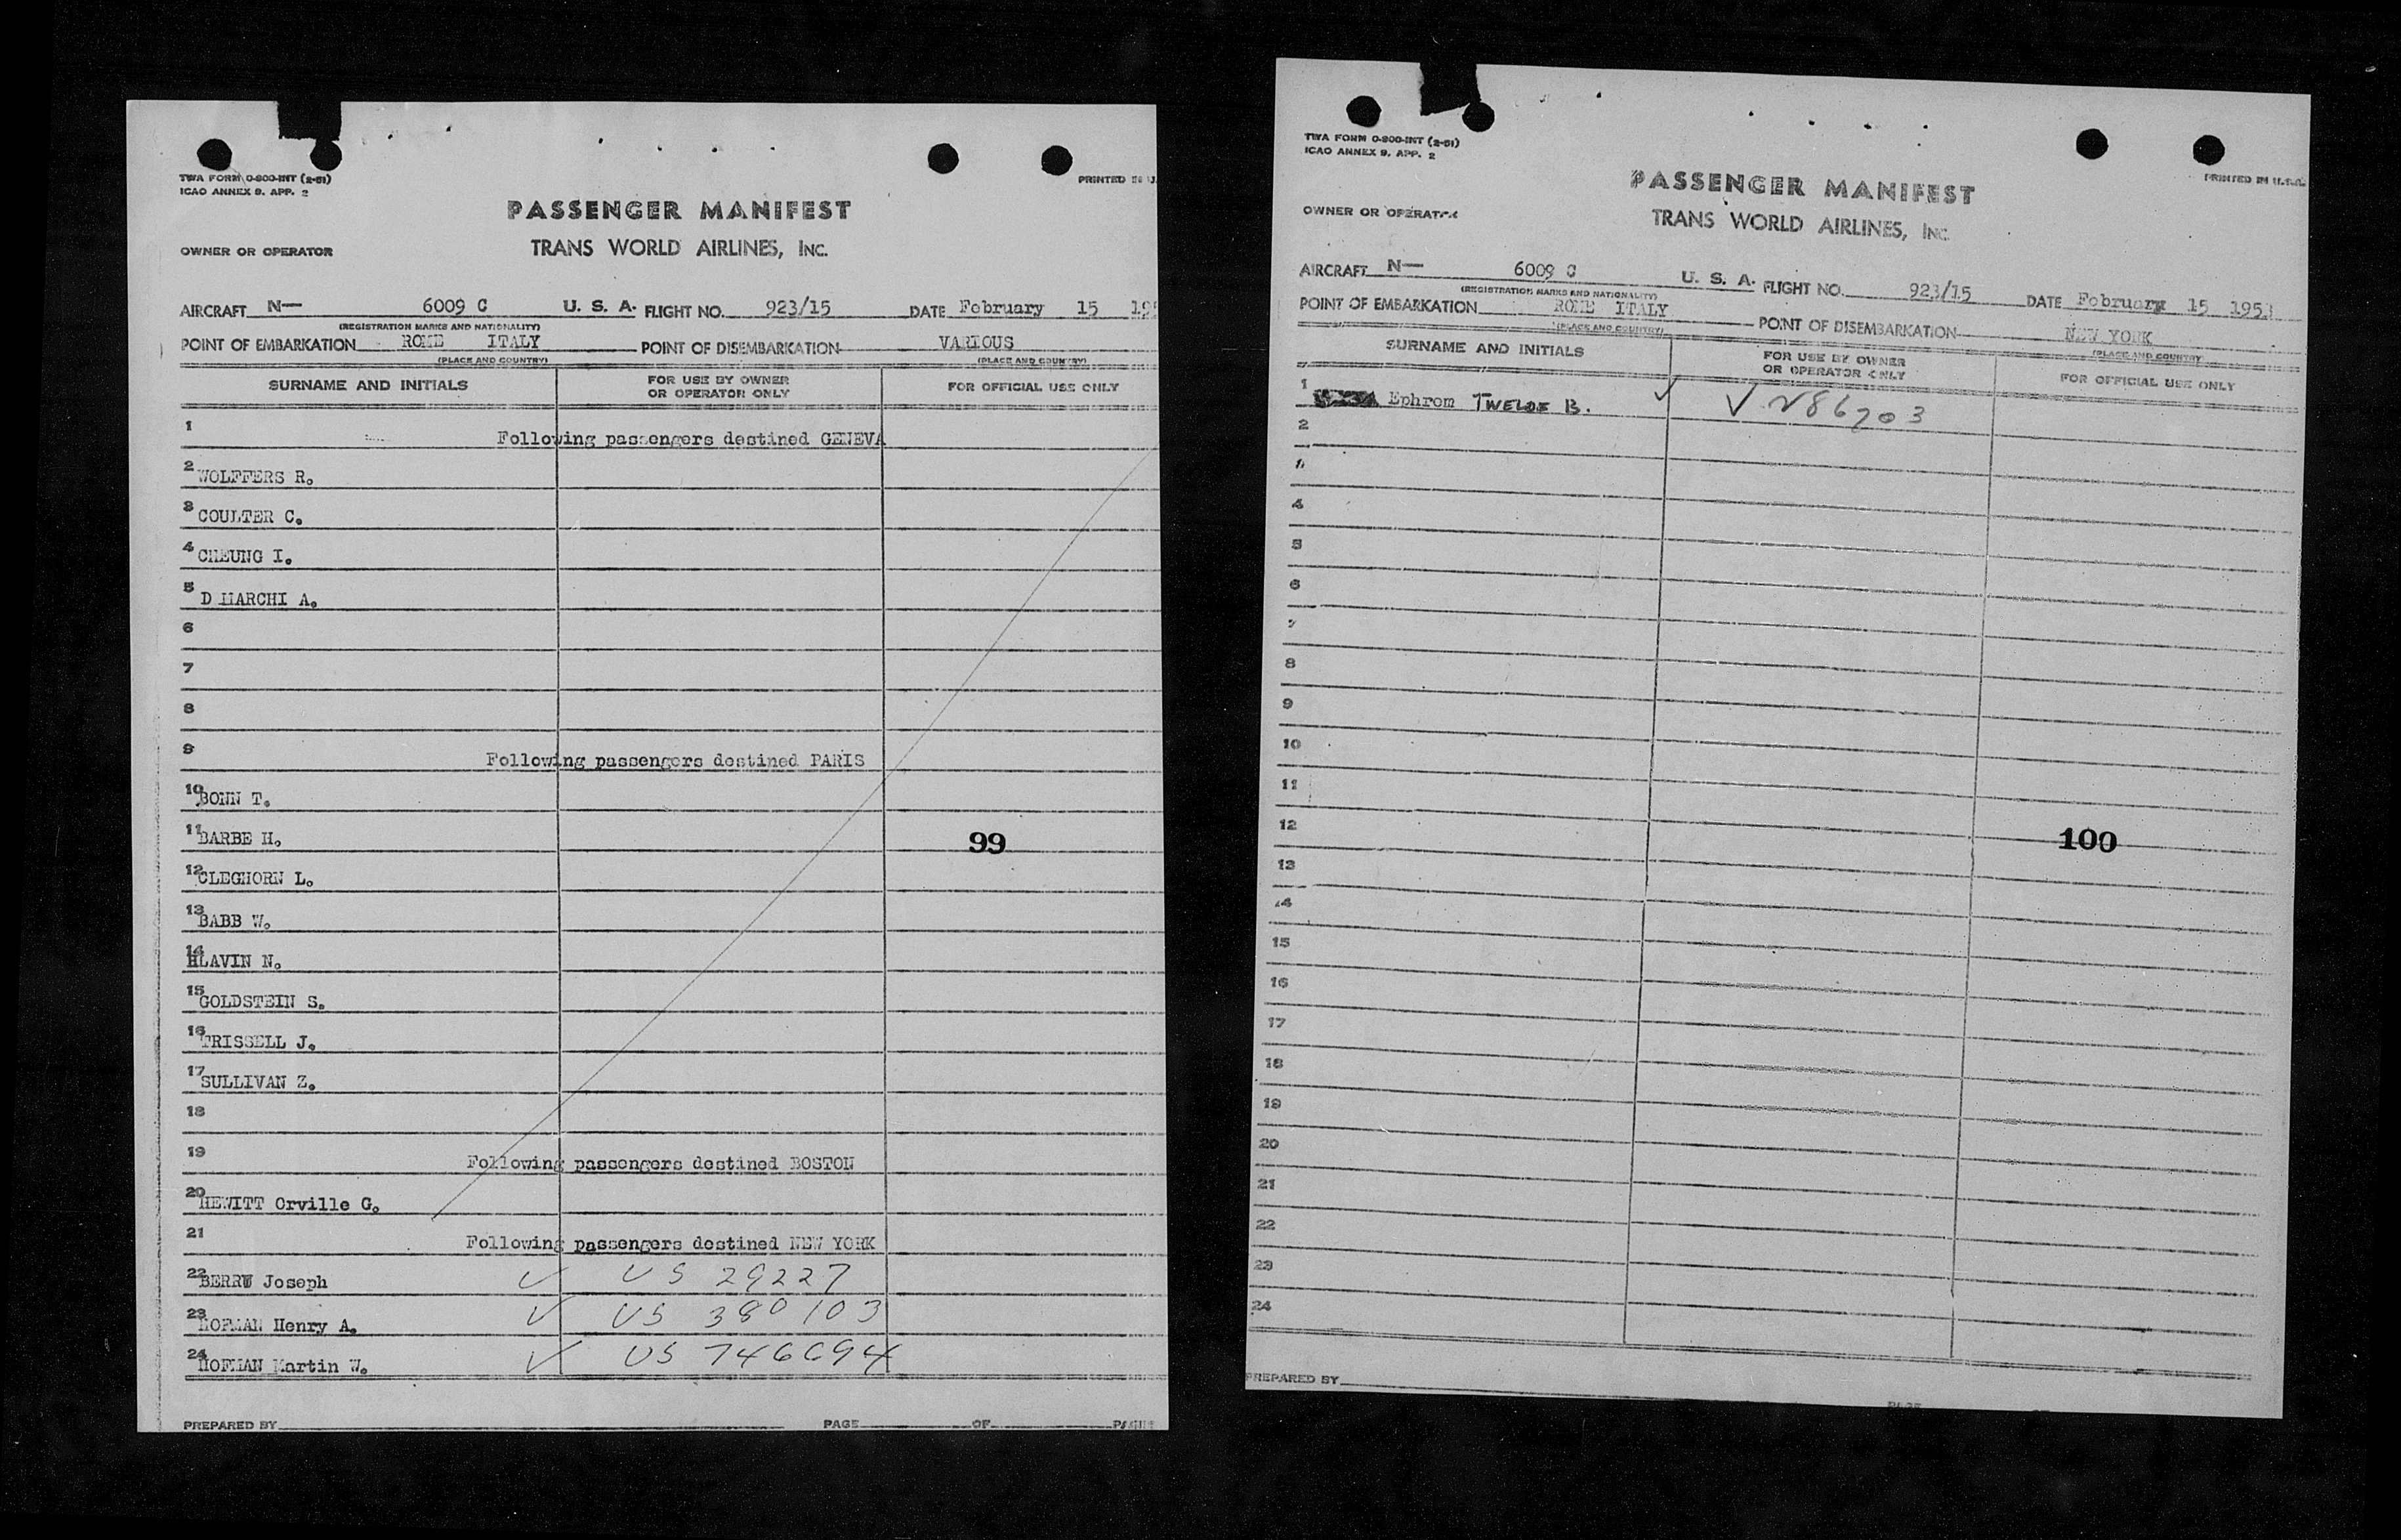 TWA FORM 0-800-INT (2-51)
ICAO ANNEX 9. APP. 2
PRINTED IN U.
PASSENGER MANIFEST
OWNER OR OPERATOR
TRANS WORLD AIRLINES, INC.
AIRCRAFT N— 6009 C U. S. A. FLIGHT NO. 923/15 DATE February 15 195
(REGISTRATION MARKS AND NATIONALITY)
POINT OF EMBARKATION ROME ITALY POINT OF DISEMBARKATION VARIOUS
(PLACE AND COUNTRY) (PLACE AND COUNTRY)
SURNAME AND INITIALS FOR USE BY OWNER OR OPERATOR ONLY FOR OFFICIAL USE ONLY
1 Following passengers destined GENEVA
2 WOLFFERS R.
3 COULTER C.
4 CHEUNG I.
5 D MARCHI A.
6
7
8
9 Following passengers destined PARIS
10 BONN T.
11 BARBE H. 99
12 CLEGHORN L.
13 BABB W.
14 HLAVIN N.
15 GOLDSTEIN S.
16 TRISSELL J.
17 SULLIVAN Z.
18
19 Following passengers destined BOSTON
20 HEWITT Orville G.
21 Following passengers destined NEW YORK
22 BERRU Joseph ✓ US 29227
23 HOFMAN Henry A. ✓ US 380103
24 HOFMAN Martin W. ✓ US 746694
PREPARED BY PAGE OF PAGES
TWA FORM 0-800-INT (2-51)
ICAO ANNEX 9. APP. 2
PRINTED IN U.S.A.
PASSENGER MANIFEST
OWNER OR OPERATOR
TRANS WORLD AIRLINES, INC.
AIRCRAFT N— 6009 C U. S. A. FLIGHT NO. 923/15 DATE February 15 1953
(REGISTRATION MARKS AND NATIONALITY)
POINT OF EMBARKATION ROME ITALY POINT OF DISEMBARKATION NEW YORK
(PLACE AND COUNTRY) (PLACE AND COUNTRY
SURNAME AND INITIALS FOR USE BY OWNER OR OPERATOR ONLY FOR OFFICIAL USE ONLY
1 Ephrem TWELDE B. ✓ ✓ V86703
2
3
4
5
6
7
8
9
10
11
12 100
13
14
15
16
17
18
19
20
21
22
23
24
PREPARED BY PAGE